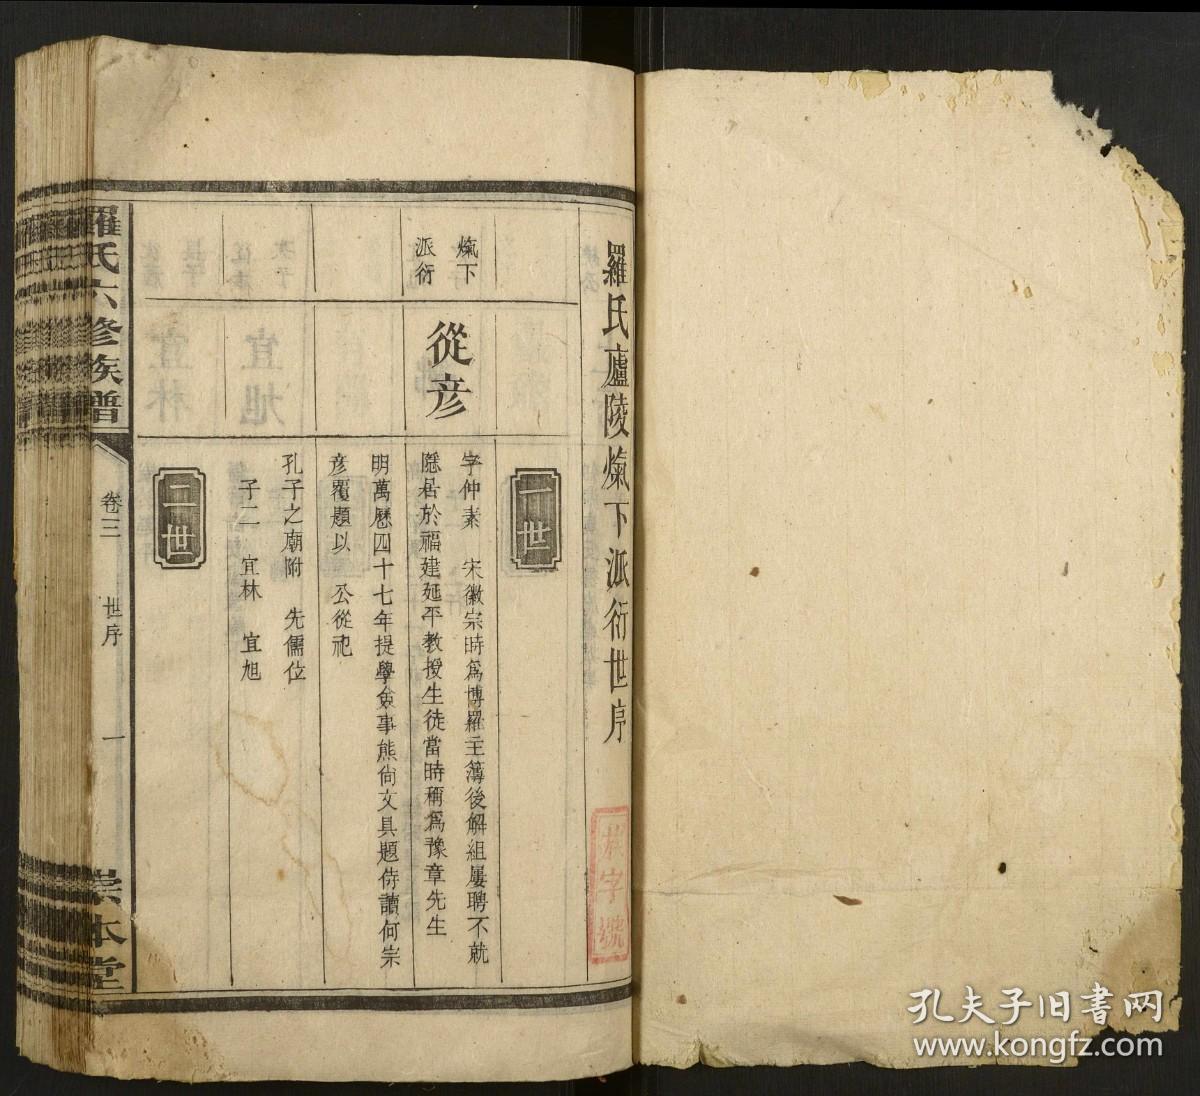 羅氏廬陵熂下派衍世序
族字號
一世
熂下
派衍
從彦
字仲素　宋徽宗時爲博羅主簿後解組屢聘不就
隱居於福建延平教授生徒當時稱爲豫章先生
明萬曆四十七年提學僉事熊尙文具題侍讀何宗
彦覆題以　公從祀
孔子之廟附　先儒位
子二　宜林　宜旭
二世
羅氏六修族譜
卷三
世序
一
崇本堂
孔夫子旧书网
www.kongfz.com